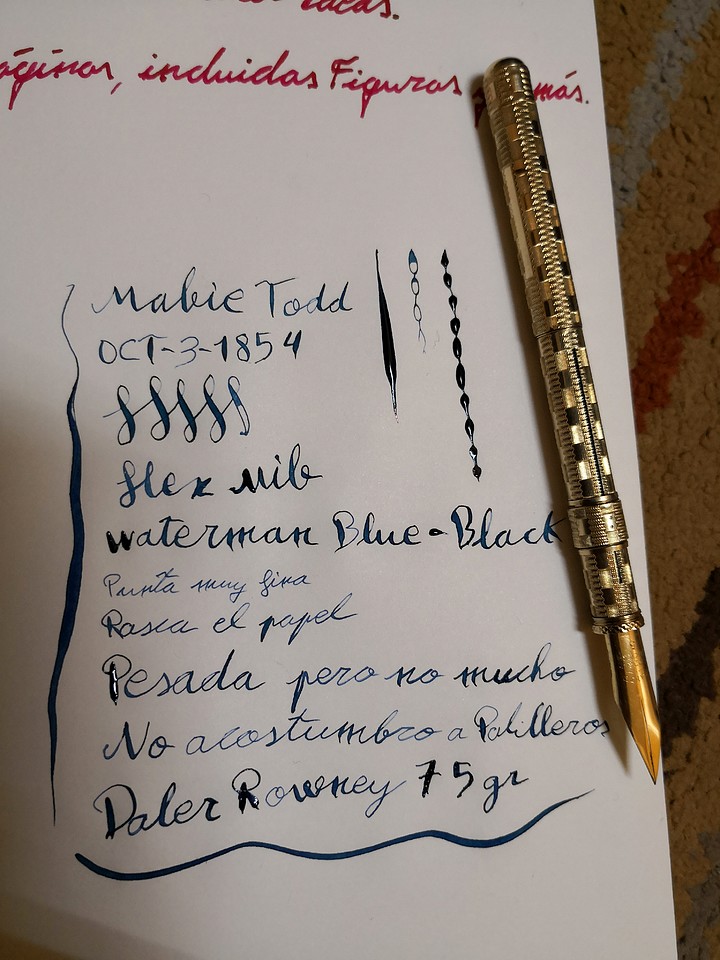 sacas.
páginas, incluidas Figuras más.
Mabie Todd
OCT-3-1854
flex nib
Waterman Blue-Black
Punta muy fina
Rasca el papel
Pesada pero no mucho
No acostumbro a Palilleros
Daler Rowney 75gr